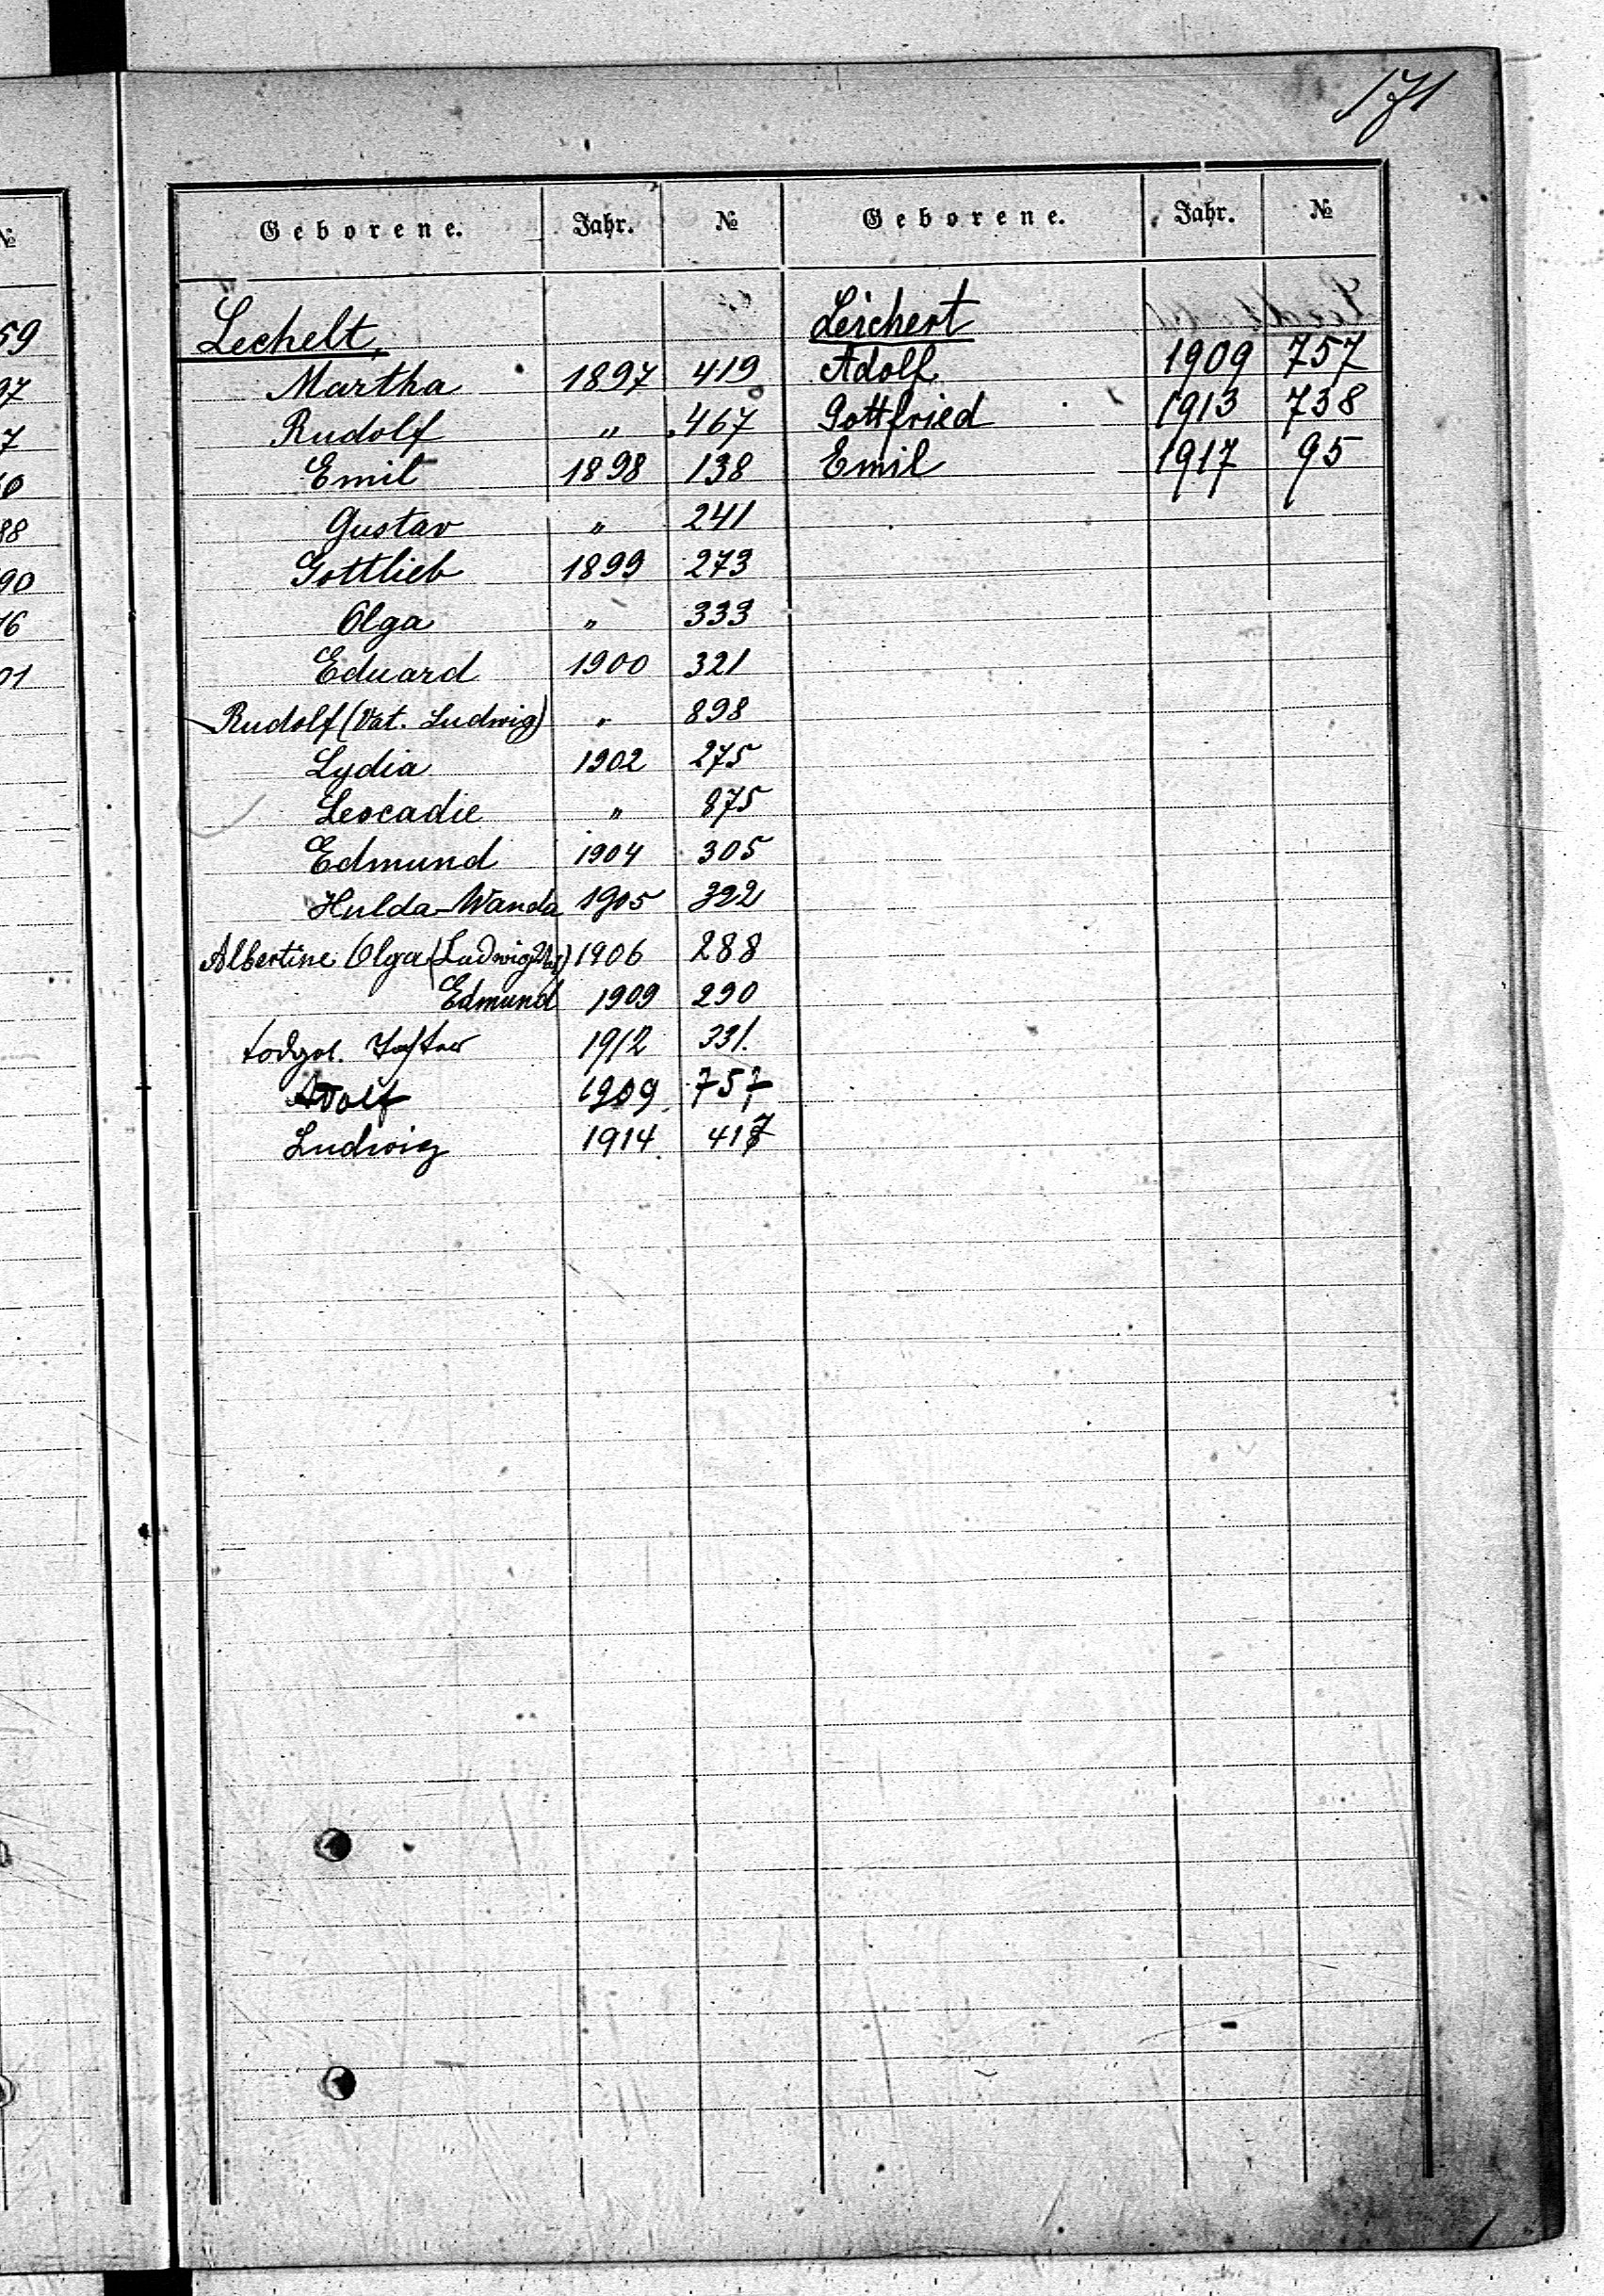 171
№
59
97
7
88
90
76
01
Geborene. Jahr. №
Lechelt,
Martha 1897 419
Rudolf " 467
Emil 1898 138
Gustav " 241
Gottlieb 1899 273
Olga " 333
Eduard 1900 321
Rudolf (Vat. Ludwig) " 898
Lydia 1902 275
Leocadie " 875
Edmund 1904 305
Hulda-Wanda 1905 322
Albertine Olga (Ludwig 1906 288
Edmund 1909 290
1912 331.
Adolf 1909 757
Ludwig 1914 417
Geborene. Jahr. №
Leichert
Adolf 1909 757
Gottfried 1913 738
Emil 1917 95